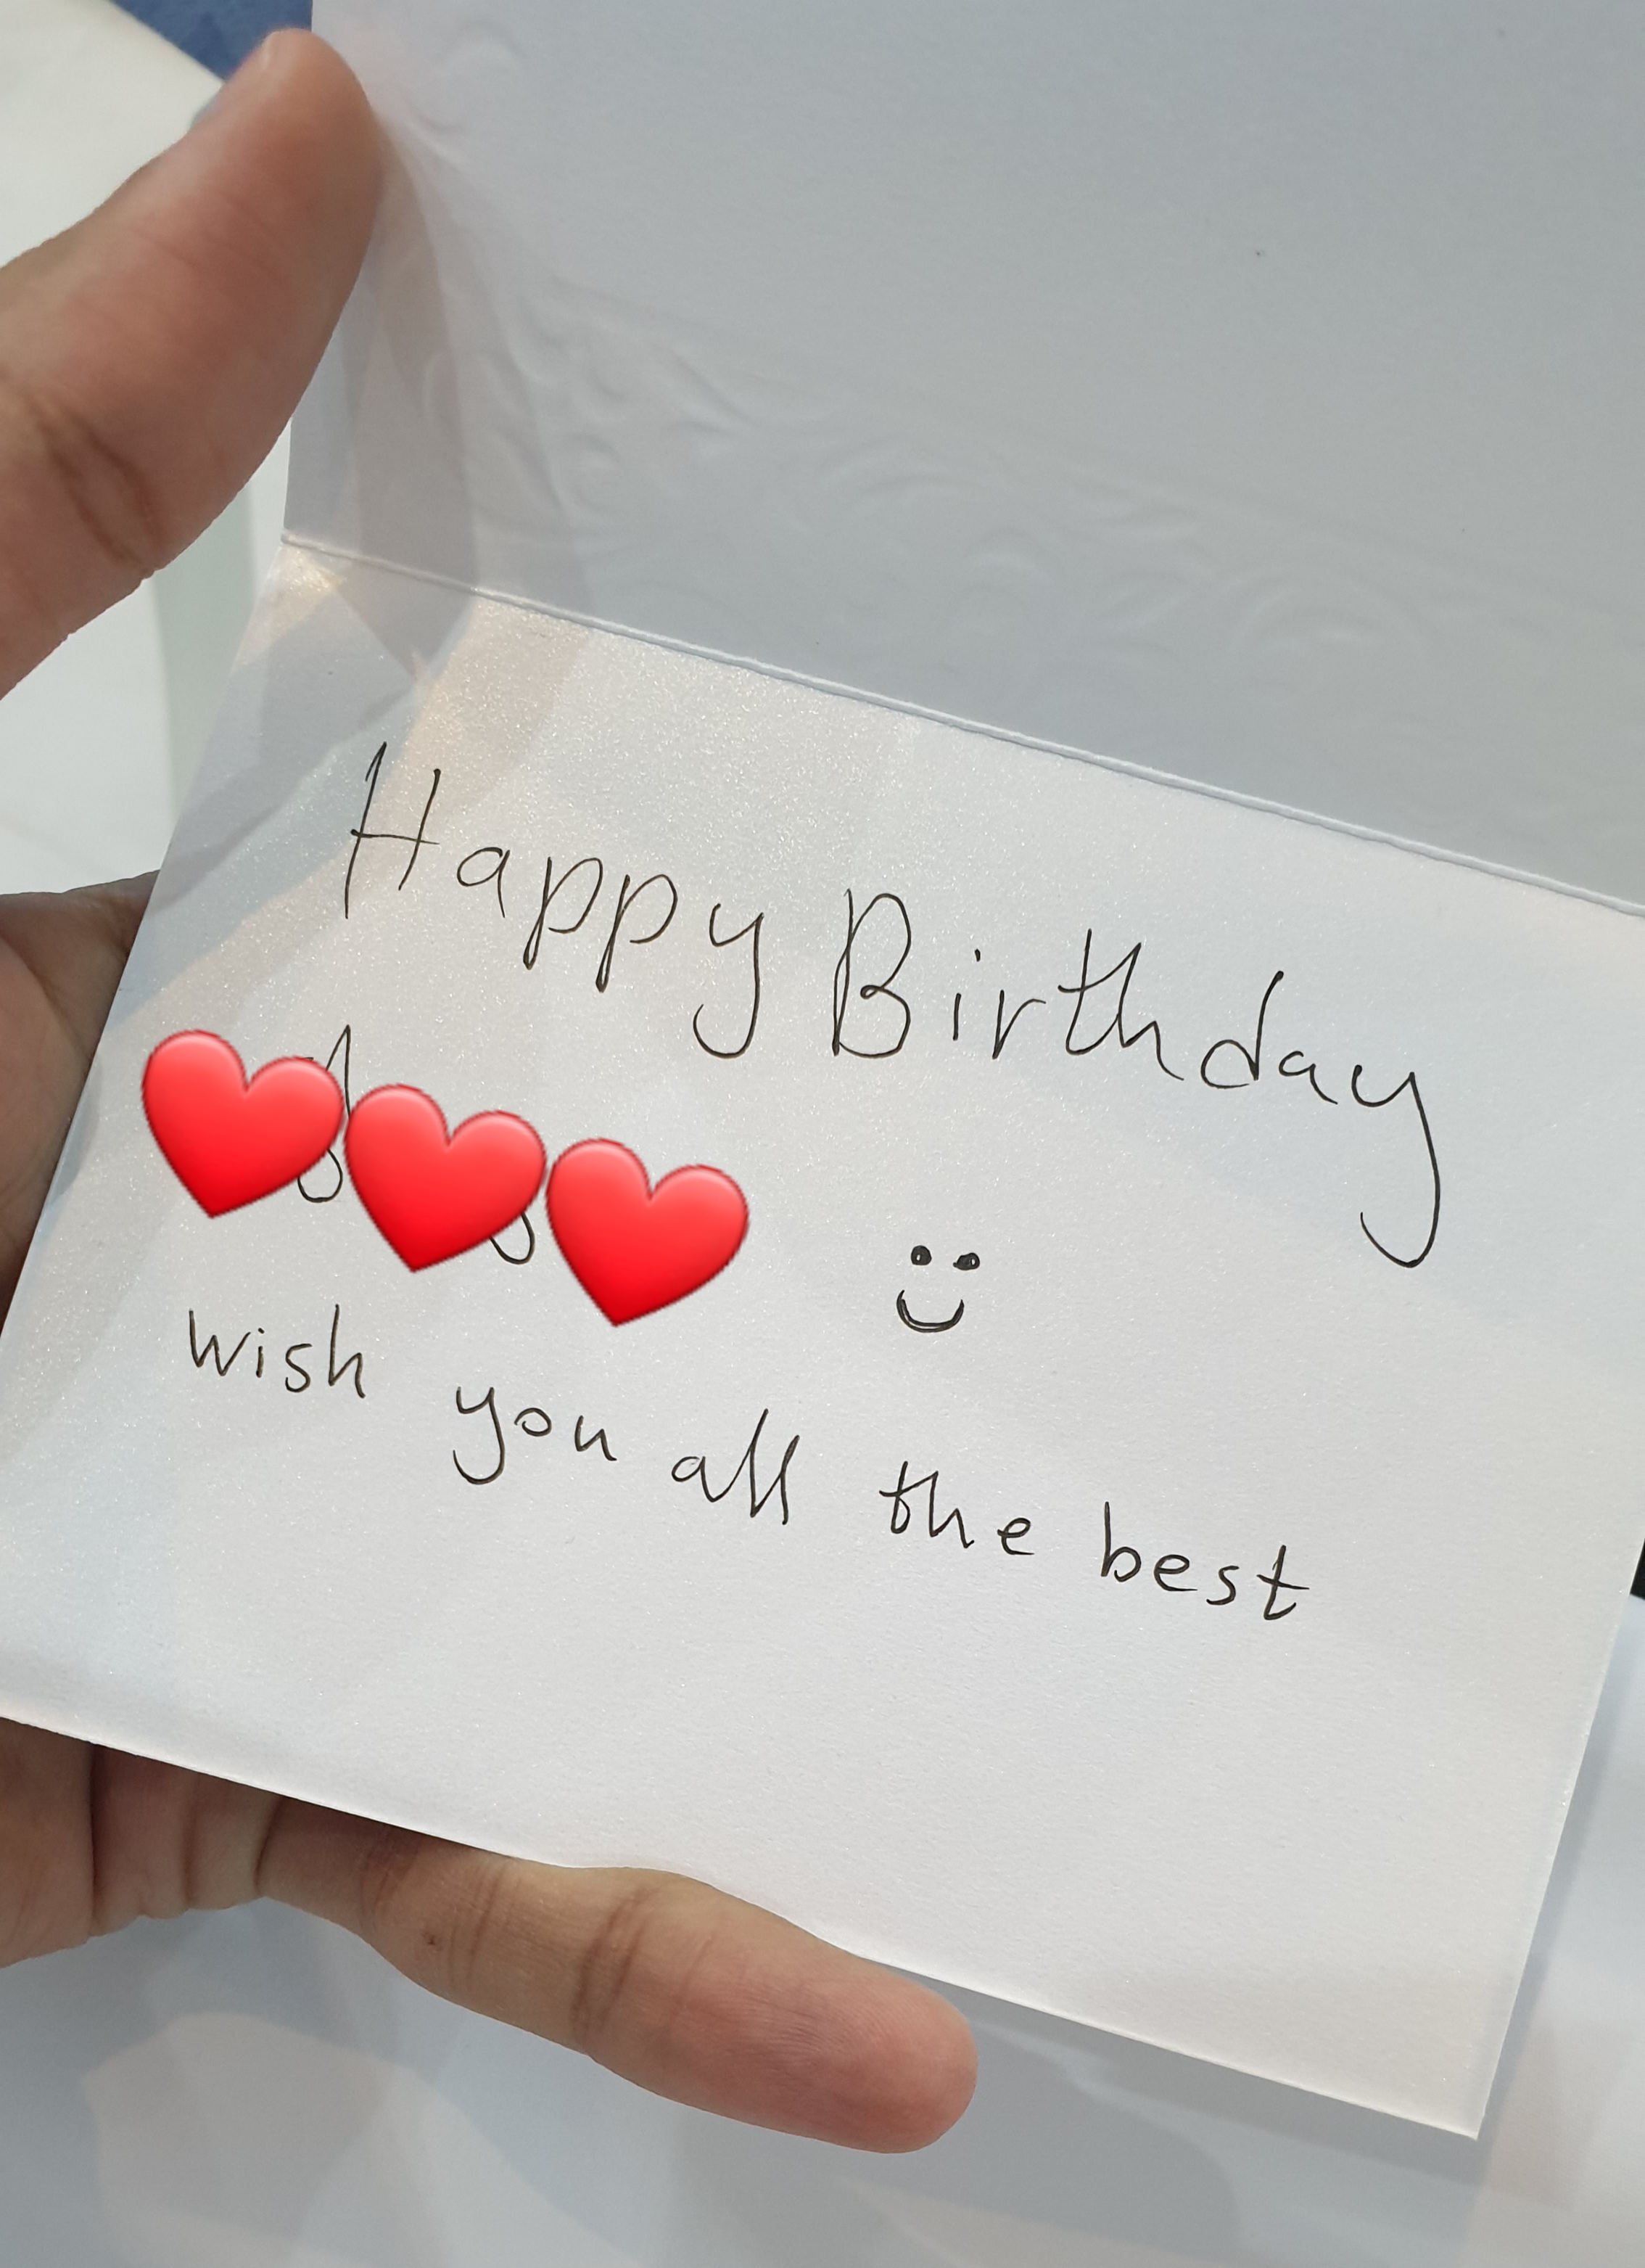 Happy Birthday
wish you all the best